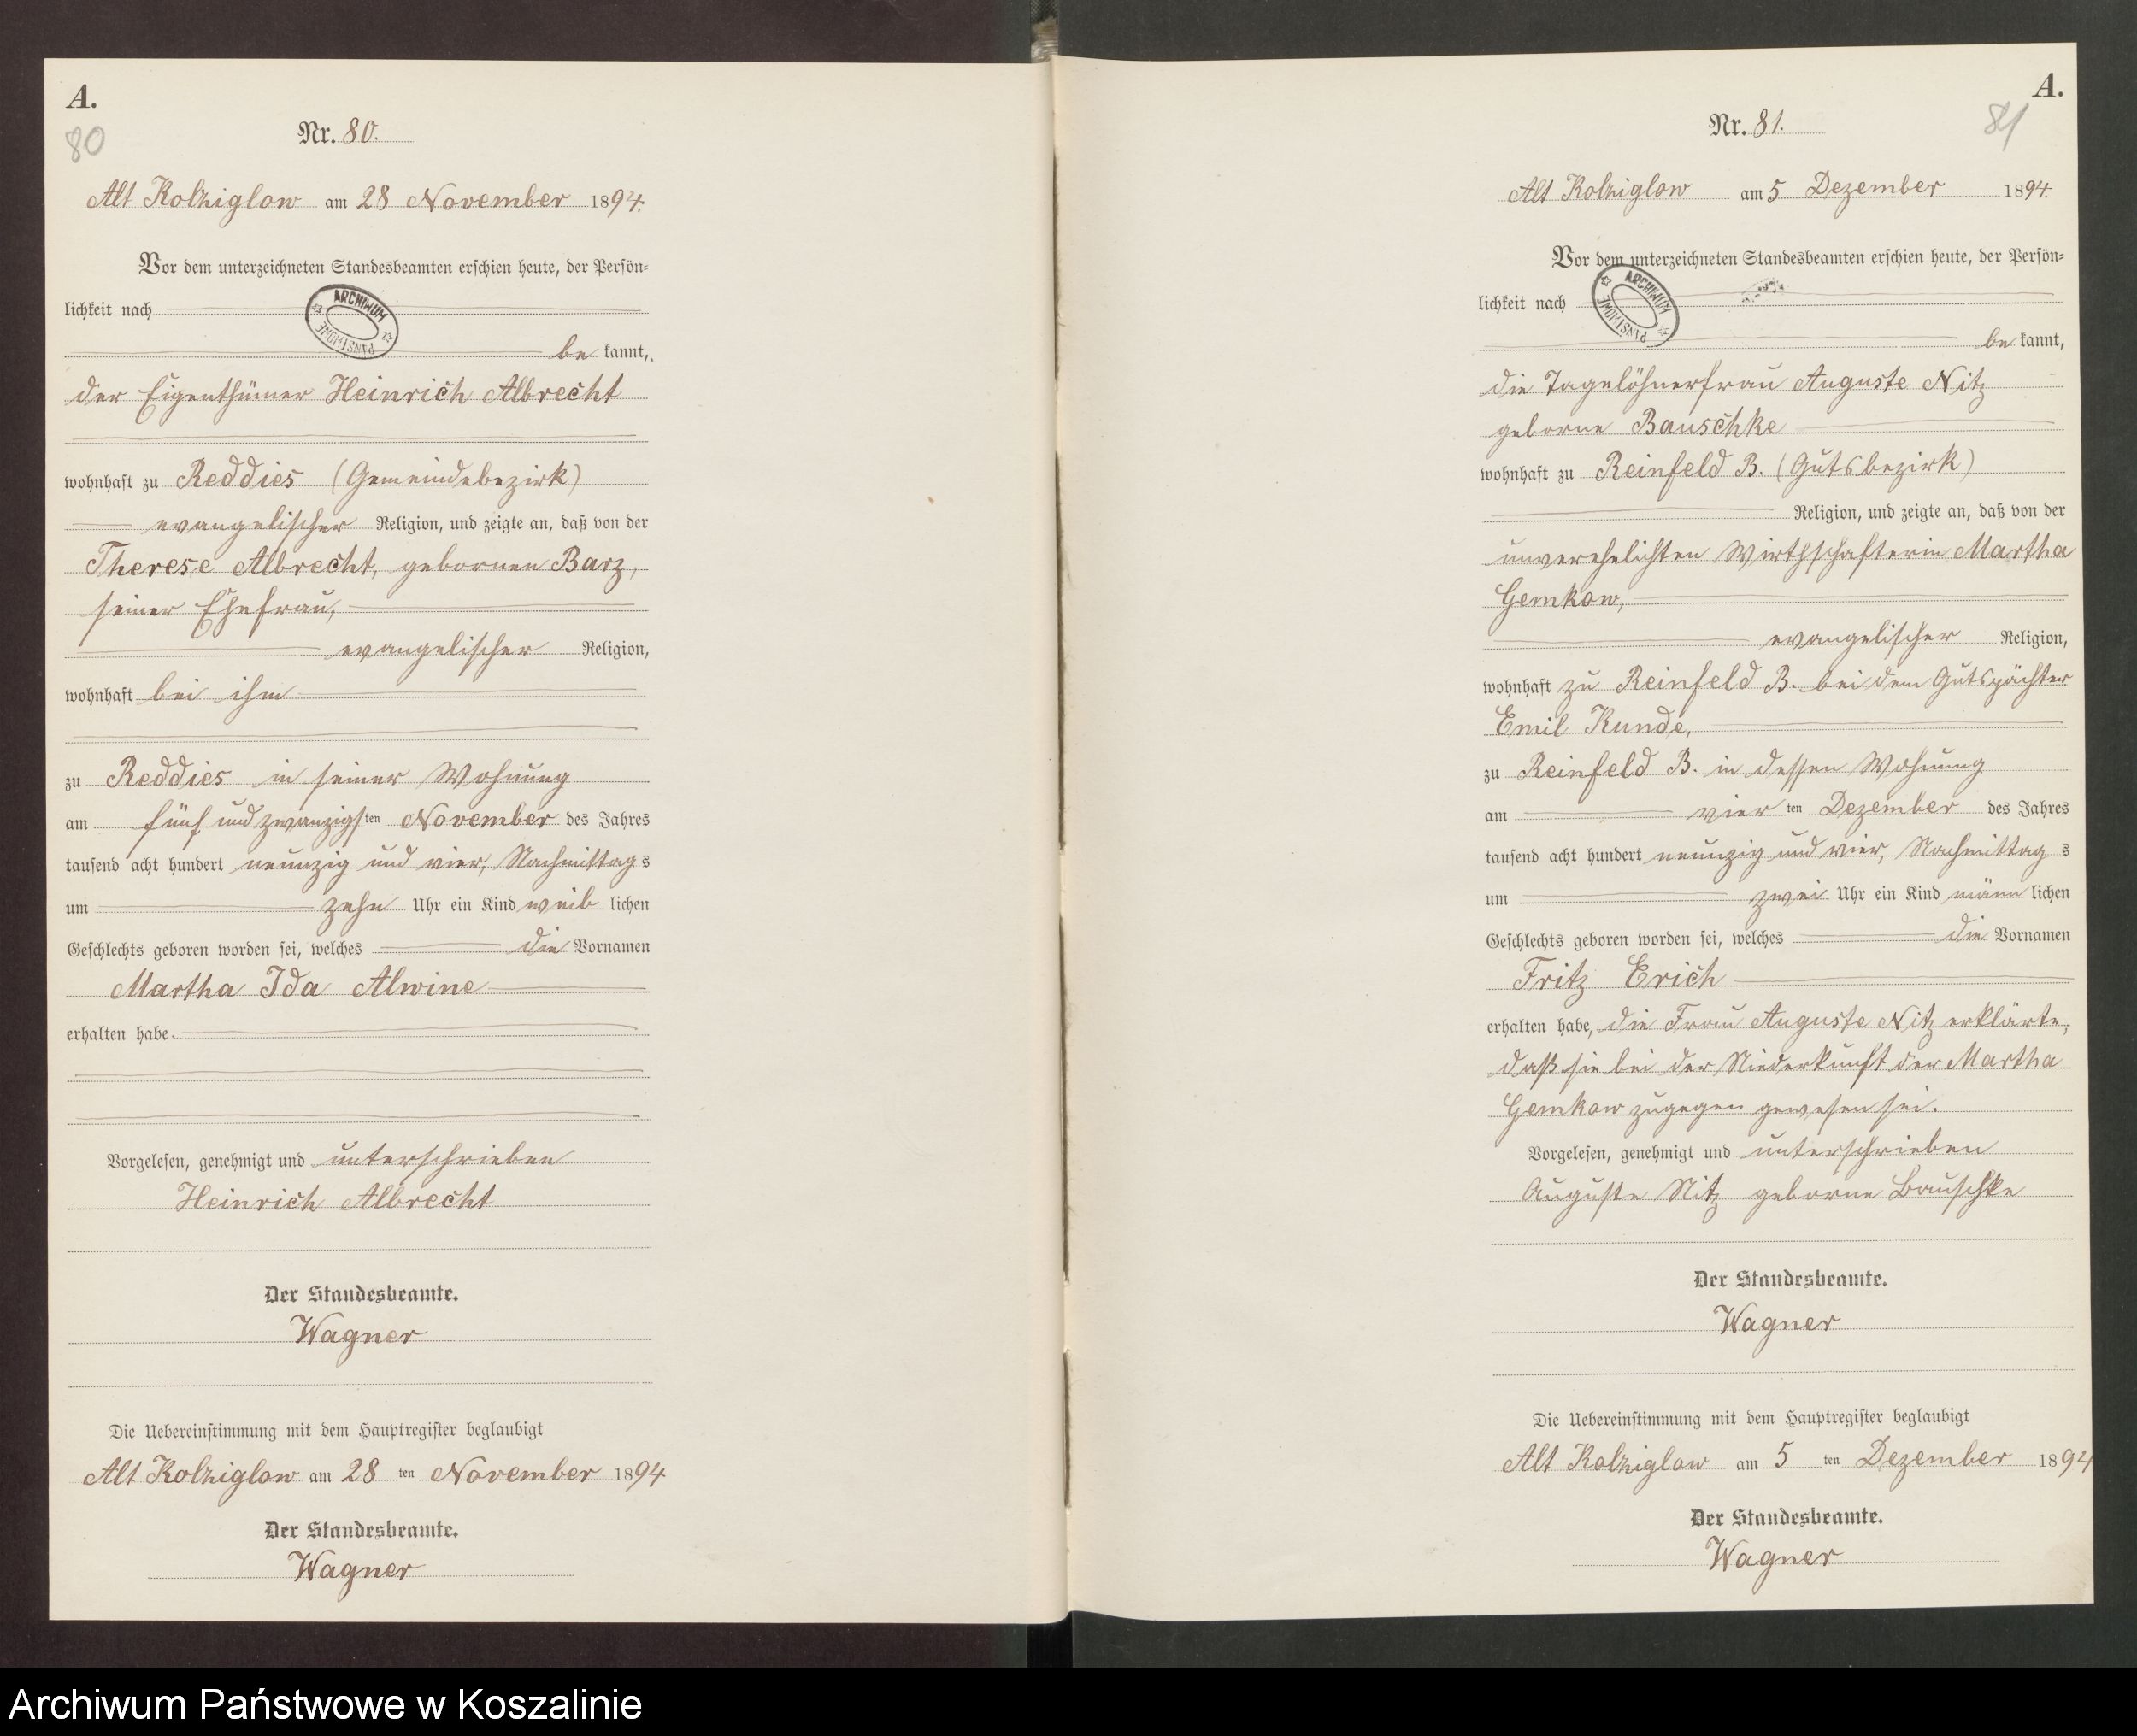 A.
80
Nr. 80.
Alt Kolziglow am 28 November 1894.
Vor dem unterzeichneten Standesbeamten erschien heute, der Persön-
lichkeit nach
ARCHIWUM PAŃSTWOWE
be kannt,
der Eigenthümer Heinrich Albrecht
wohnhaft zu Reddies (Gemeindebezirk)
evangelischer Religion, und zeigte an, daß von der
Therese Albrecht, gebornen Barz,
seiner Ehefrau,
evangelischer Religion,
wohnhaft bei ihm
zu Reddies in seiner Wohnung
am fünf und zwanzigsten November des Jahres
tausend acht hundert neunzig und vier, Nachmittags
um zehn Uhr ein Kind weib lichen
Geschlechts geboren worden sei, welches die Vornamen
Martha Ida Alwine
erhalten habe.
Vorgelesen, genehmigt und unterschrieben
Heinrich Albrecht
Der Standesbeamte.
Wagner
Die Uebereinstimmung mit dem Hauptregister beglaubigt
Alt Kolziglow am 28 ten November 1894
Der Standesbeamte.
Wagner
A.
81
Nr. 81.
Alt Kolziglow am 5 Dezember 1894.
Vor dem unterzeichneten Standesbeamten erschien heute, der Persön-
lichkeit nach
ARCHIWUM PAŃSTWOWE
be kannt,
die Tagelöhnerfrau Auguste Nitz
geborne Bauschke
wohnhaft zu Reinfeld B. (Gutsbezirk)
Religion, und zeigte an, daß von der
unverehelichten Wirthschafterin Martha
Gemkow,
evangelischer Religion,
wohnhaft zu Reinfeld B. bei dem Gutspächter
Emil Kunde,
zu Reinfeld B. in dessen Wohnung
am vier ten Dezember des Jahres
tausend acht hundert neunzig und vier, Nachmittag s
um zwei Uhr ein Kind männ lichen
Geschlechts geboren worden sei, welches die Vornamen
Fritz Erich
erhalten habe, die Frau Auguste Nitz erklärte,
daß sie bei der Niederkunft der Martha
Gemkow zugegen gewesen sei.
Vorgelesen, genehmigt und unterschrieben
Auguste Nitz geborne Bauschke
Der Standesbeamte.
Wagner
Die Uebereinstimmung mit dem Hauptregister beglaubigt
Alt Kolziglow am 5 ten Dezember 1894
Der Standesbeamte.
Wagner
Archiwum Państwowe w Koszalinie